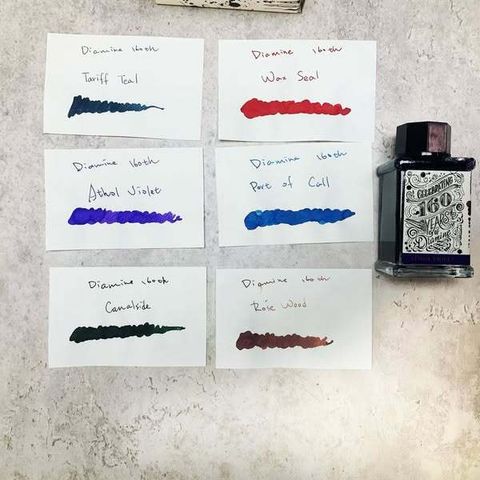 Diamine 160th
Tariff Teal
Diamine 160th
Wax Seal
Diamine 160th
Athol Violet
Diamine 160th
Port of Call
Diamine 160th
Canalside
Diamine 160th
Rose Wood
CELEBRATING
160
YEARS